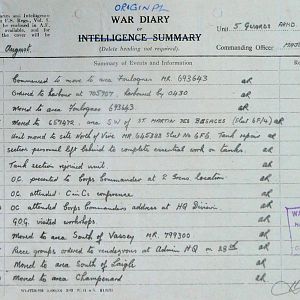 ORIGINAL
and Intelligence
WAR DIARY
OF
INTELLIGENCE SUMMARY
(Delete heading not required).
Unit 5 GUARDS ARMD
Commanding Officer
August
Summary of Events and Information
Commenced to move to area Foulognes MR 693643 AR
Ordered to harbour at 705707. Harboured by 0430 AR
Moved to area Foulognes 693643 AR
Moved to 657472. area SW of ST MARTIN DES BESACES (Sheet 6F/4) AR
Unit moved to site North of Vire MR 645388 Sheet No 6F6. Tank repair
section personnel left behind to complete essential work on tanks AR
Tank section rejoined unit. AR
O.C. presented to Corps Commander at location AR
O.C. attended C in C's conference AR
O.C. attended Corps Commanders address at HQ Division AR
G.O.C. visited workshops AR
Moved to area South of Vassey MR. 799300 AR
Recce groups ordered to rendezvous at Admin HQ on 28th AR
Moved to area South of Laigle AR
Moved to area Champenard AR